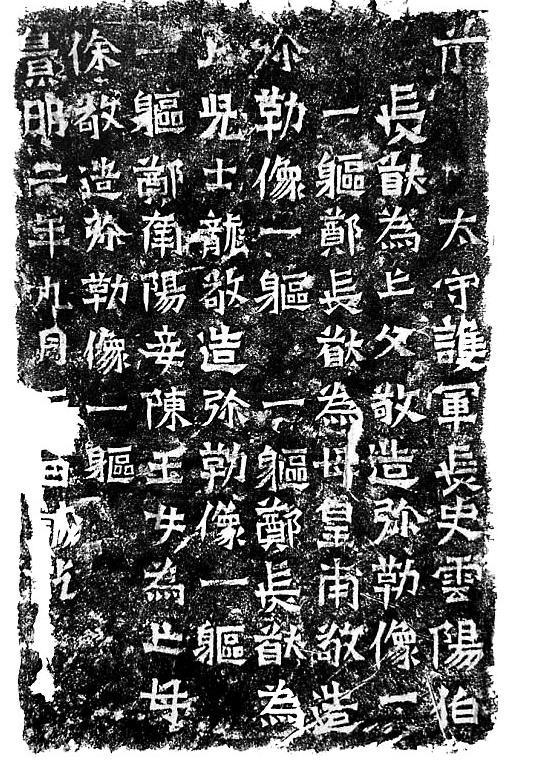 太守護軍長史雲陽伯
長猷為亡父敬造弥勒像一
一軀鄭長猷為母皇甫敬造
弥勒像一軀一軀鄭長猷為
亡児士龍敬造弥勒像一軀
一軀鄭南陽妾陳玉女為亡母
徐敬造弥勒像一軀
景明二年九月日誡訖